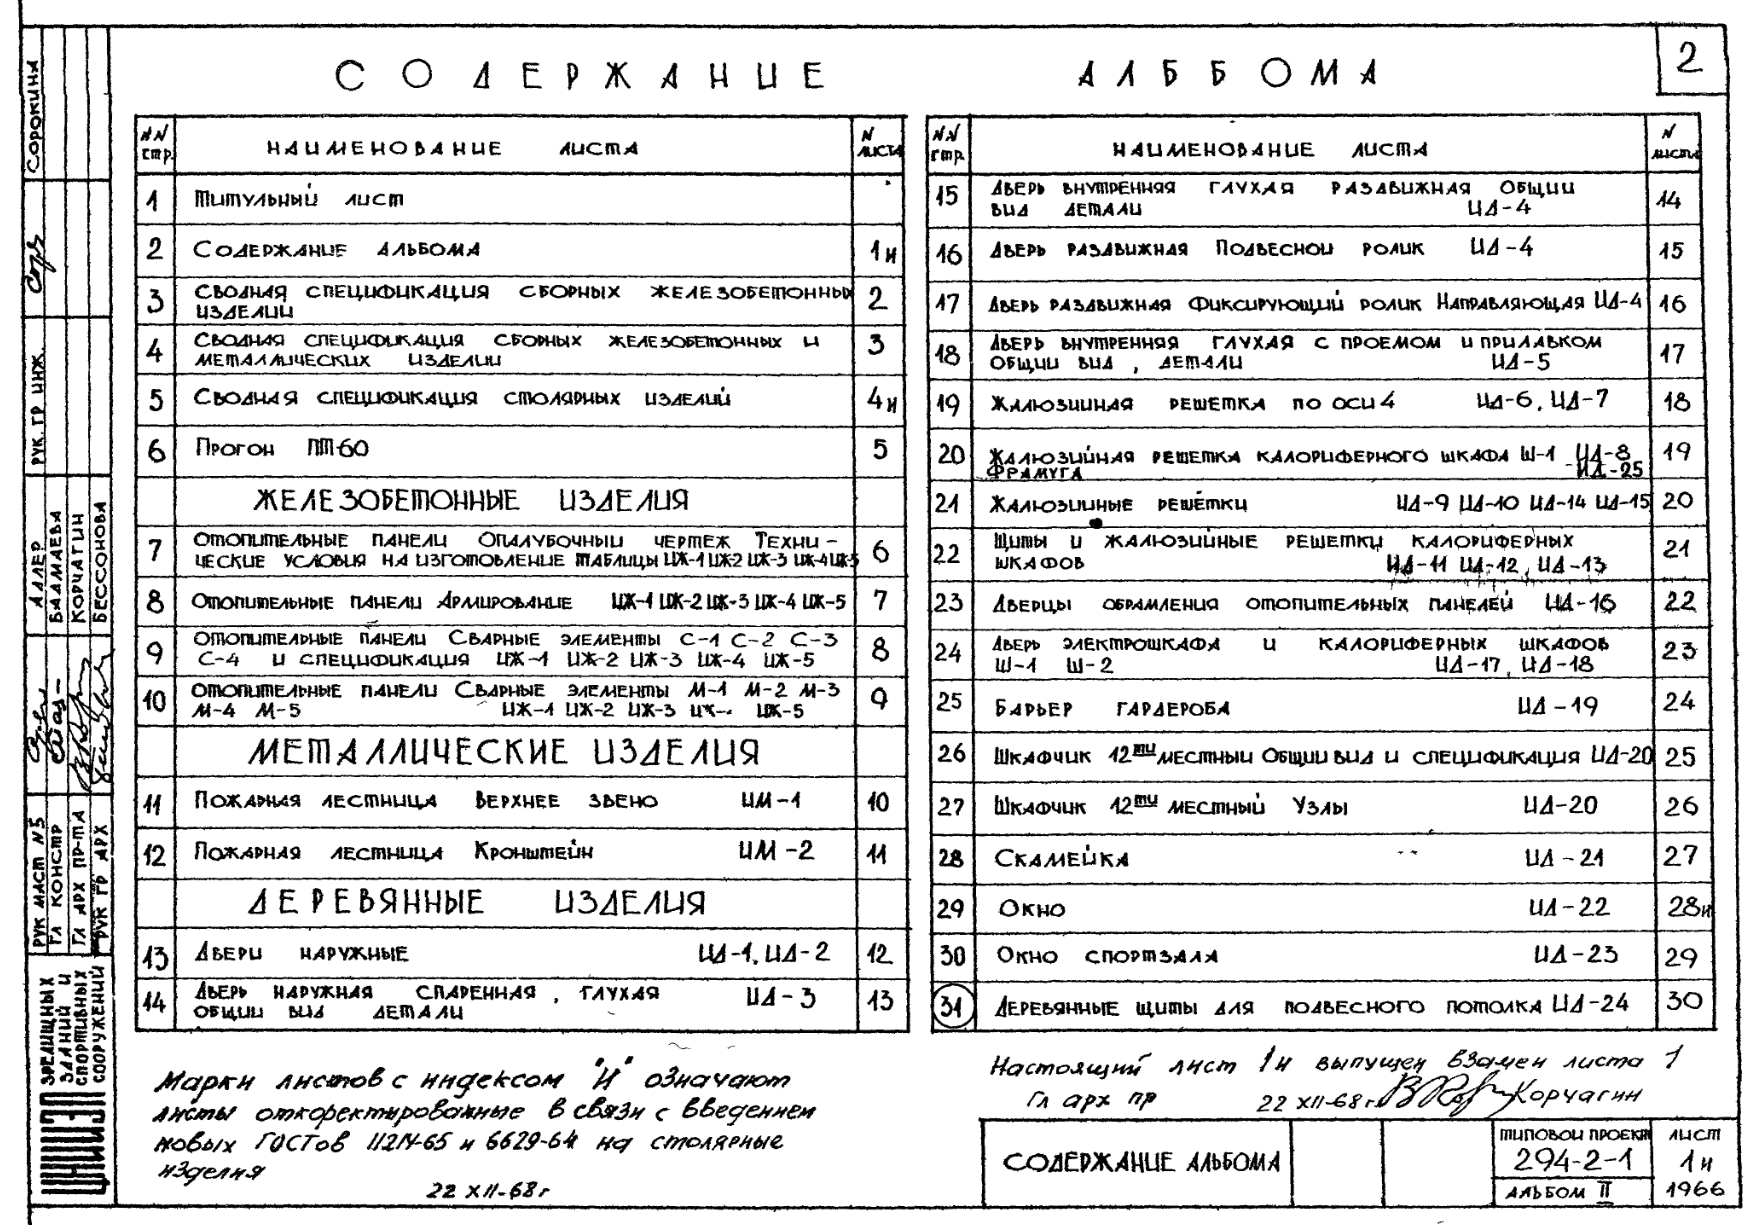 2
СОДЕРЖАНИЕ АЛЬБОМА
N.N стр.
НАИМЕНОВАНИЕ ЛИСТА
N ЛИСТА
1 Титульный лист
2 Содержание альбома 1и
3 Сводная спецификация сборных железобетонных
изделий 2
4 Сводная спецификация сборных железобетонных и
металлических изделий 3
5 Сводная спецификация столярных изделий 4и
6 Прогон ПТ-60 5
ЖЕЛЕЗОБЕТОННЫЕ ИЗДЕЛИЯ
7 Отопительные панели Опалубочный чертеж Техни-
ческие условия на изготовление таблицы ИЖ-1 ИЖ-2 ИЖ-3 ИЖ-4 ИЖ-5 6
8 Отопительные панели Армирование ИЖ-1 ИЖ-2 ИЖ-3 ИЖ-4 ИЖ-5 7
9 Отопительные панели Сварные элементы С-1 С-2 С-3
С-4 и спецификация ИЖ-1 ИЖ-2 ИЖ-3 ИЖ-4 ИЖ-5 8
10 Отопительные панели Сварные элементы М-1 М-2 М-3
М-4 М-5 ИЖ-1 ИЖ-2 ИЖ-3 ИЖ- ИЖ-5 9
МЕТАЛЛИЧЕСКИЕ ИЗДЕЛИЯ
11 Пожарная лестница Верхнее звено ИМ-1 10
12 Пожарная лестница Кронштейн ИМ-2 11
ДЕРЕВЯННЫЕ ИЗДЕЛИЯ
13 Двери наружные ИД-1, ИД-2 12
14 Дверь наружная спаренная, глухая ИД-3
общий вид детали 13
N.N стр.
НАИМЕНОВАНИЕ ЛИСТА
N ЛИСТА
15 Дверь внутренняя глухая раздвижная общий
вид детали ИД-4 14
16 Дверь раздвижная Подвесной ролик ИД-4 15
17 Дверь раздвижная Фиксирующий ролик Направляющая ИД-4 16
18 Дверь внутренняя глухая с проемом и прилавком
общий вид, детали ИД-5 17
19 Жалюзийная решетка по оси 4 ИД-6, ИД-7 18
20 Жалюзийная решетка калориферного шкафа Ш-1 ИД-8
Фрамуга ИД-25 19
21 Жалюзийные решётки ИД-9 ИД-10 ИД-14 ИД-15 20
22 Щиты и жалюзийные решетки калориферных
шкафов ИД-11 ИД-12, ИД-13 21
23 Дверцы обрамления отопительных панелей ИД-16 22
24 Дверь электрошкафа и калориферных шкафов
Ш-1 Ш-2 ИД-17, ИД-18 23
25 Барьер гардероба ИД-19 24
26 Шкафчик 12ти местный Общий вид и спецификация ИД-20 25
27 Шкафчик 12ти местный Узлы ИД-20 26
28 Скамейка ИД-21 27
29 Окно ИД-22 28и
30 Окно спортзала ИД-23 29
31 Деревянные щиты для подвесного потолка ИД-24 30
Марки листов с индексом "И" означают
листы откорректированные в связи с введением
новых ГОСТов 11214-65 и 6629-64 на столярные
изделия
22 XII-68г
Настоящий лист 1и выпущен взамен листа 1
Гл арх пр 22 XII-68г Корчагин
СОДЕРЖАНИЕ АЛЬБОМА
ТИПОВОЙ ПРОЕКТ
294-2-1
АЛЬБОМ II
ЛИСТ
1и
1966
СОРОКИНА
РУК. ГР ИНЖ.
АЛЛЕР
БАЛМАЕВА
КОРЧАГИН
БЕССОНОВА
РУК МАСТ N5
ГЛ КОНСТР
ГЛ АРХ ПР-ТА
РУК ГР АРХ
ЗРЕЛИЩНЫХ
ЗДАНИЙ И
СПОРТИВНЫХ
СООРУЖЕНИЙ
ЦНИИЭП